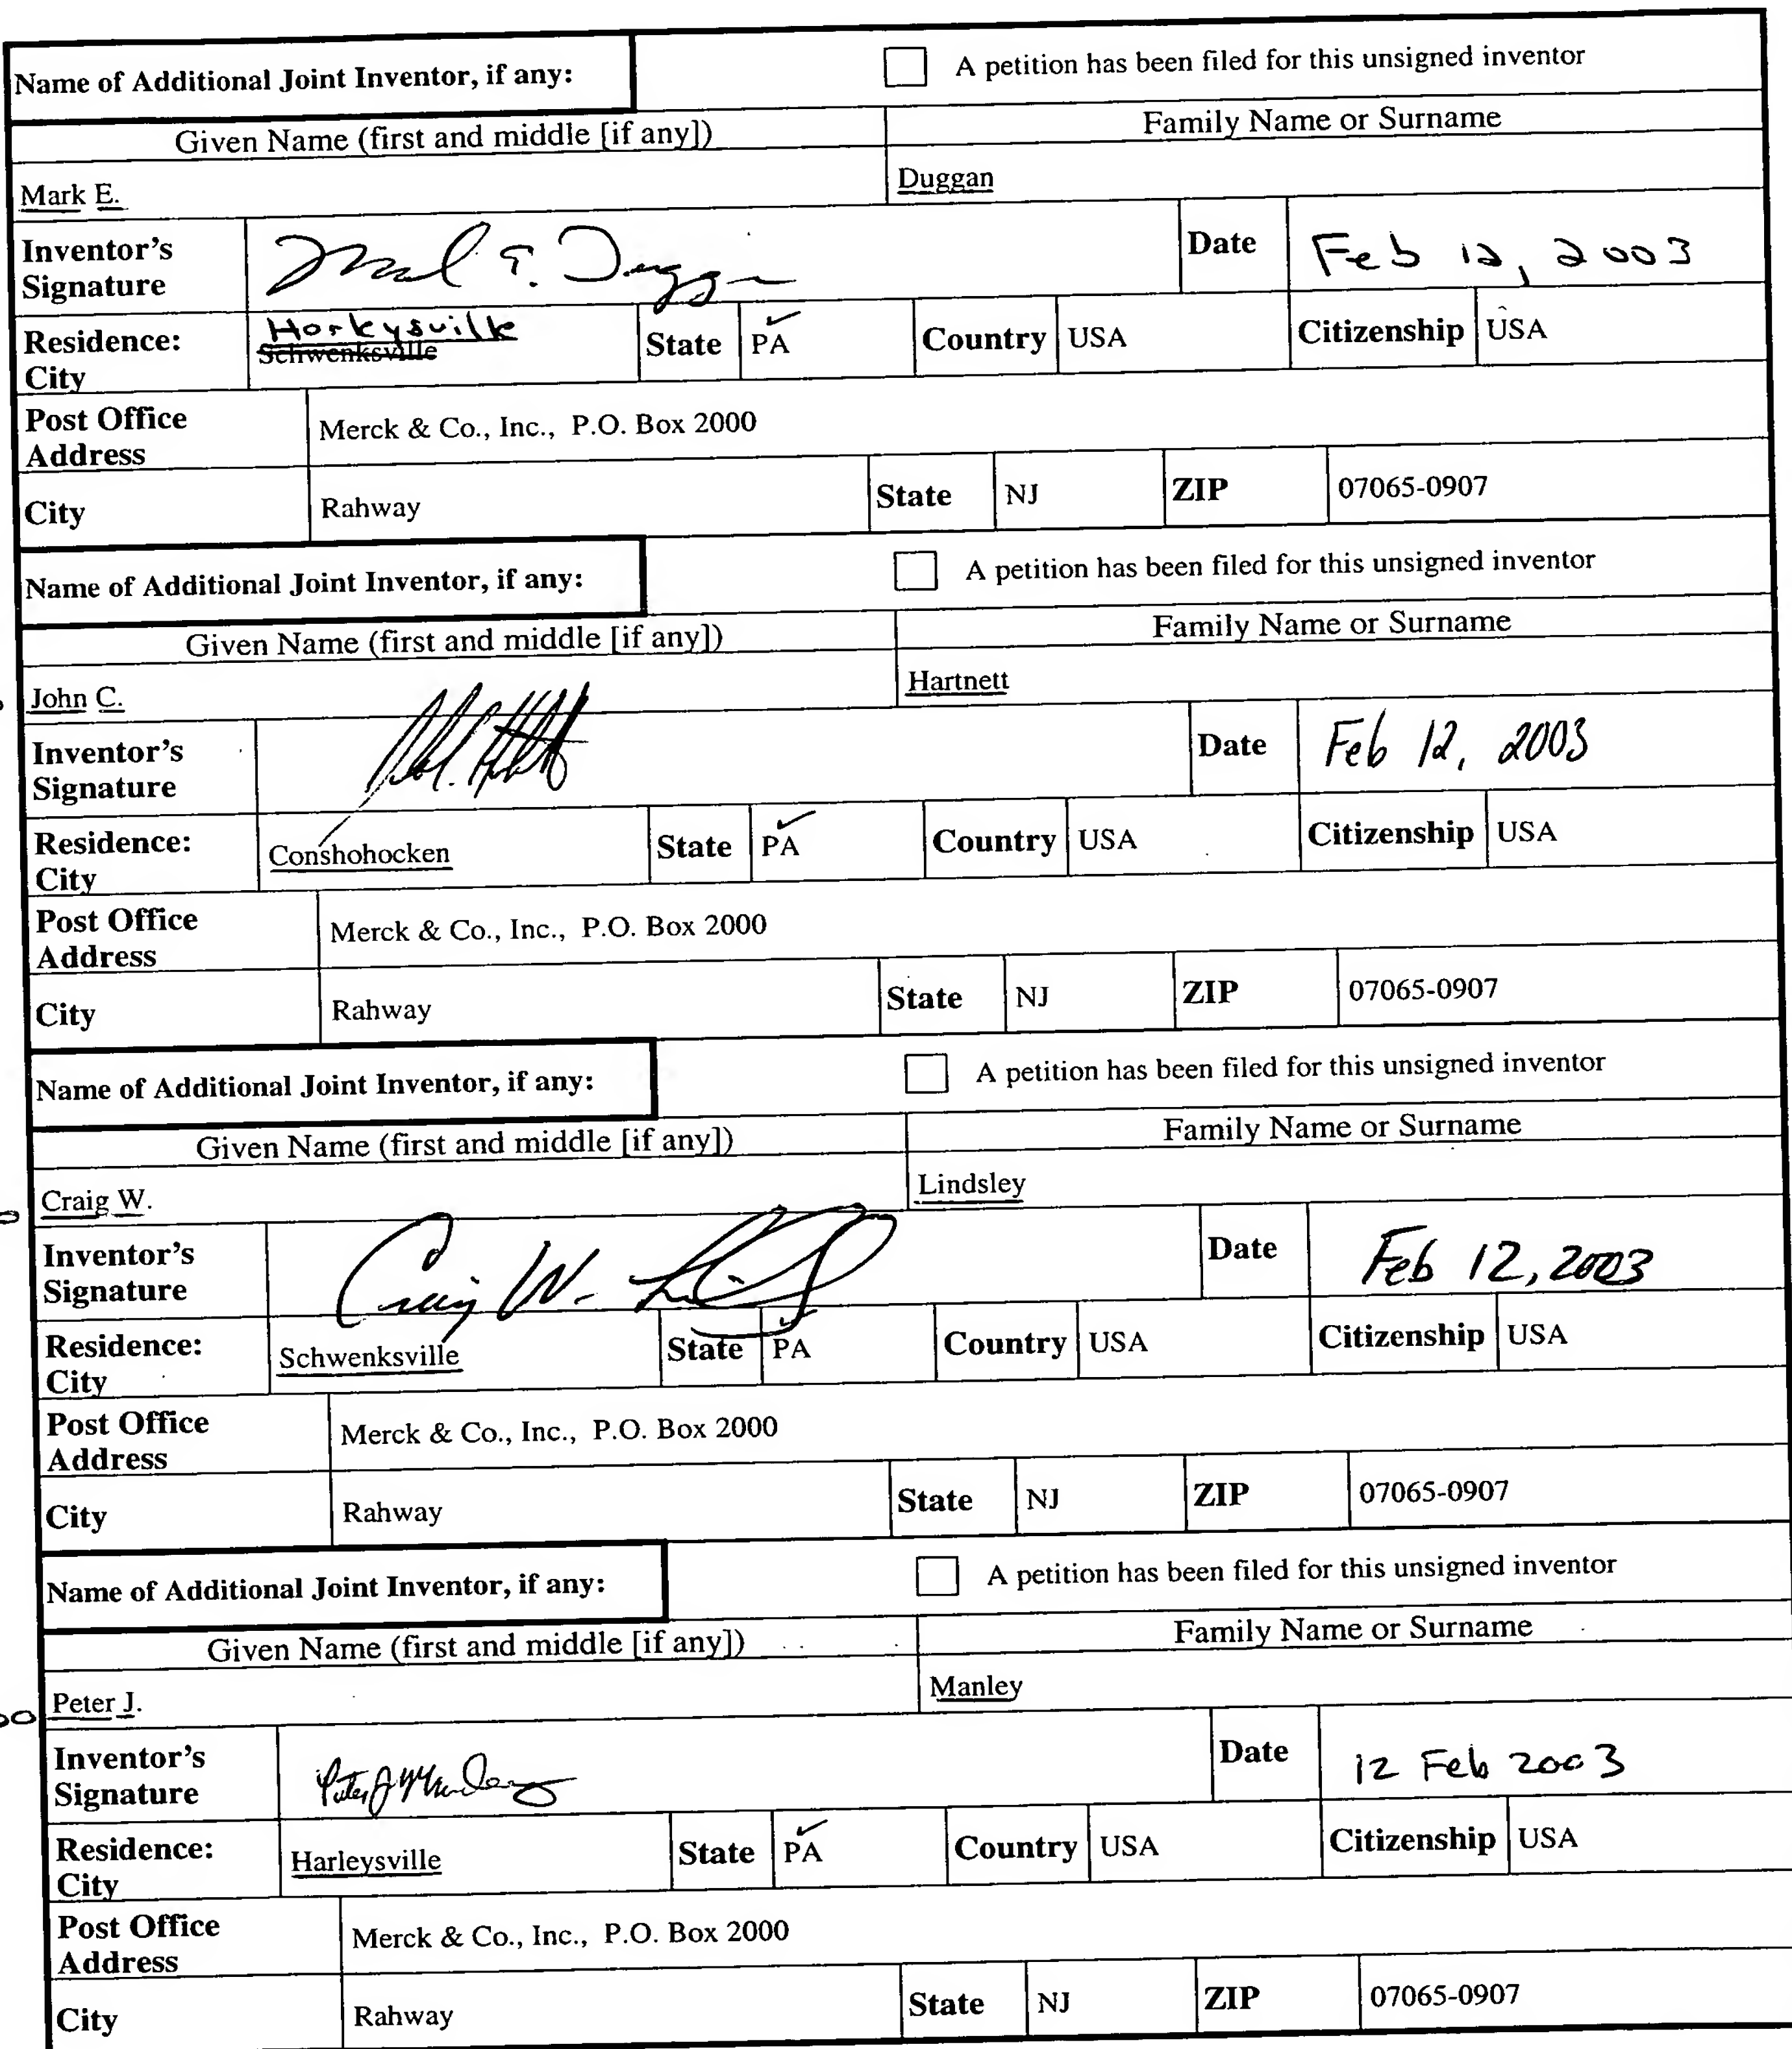 Name of Additional Joint Inventor, if any: A petition has been filed for this unsigned inventor
Given Name (first and middle [if any]) Family Name or Surname
Mark E. Duggan
Inventor's Signature Date Feb 12, 2003
Residence: City Schwenksville State PA Country USA Citizenship USA
Post Office Address Merck & Co., Inc., P.O. Box 2000
City Rahway State NJ ZIP 07065-0907
Name of Additional Joint Inventor, if any: A petition has been filed for this unsigned inventor
Given Name (first and middle [if any]) Family Name or Surname
John C. Hartnett
Inventor's Signature Date Feb 12, 2003
Residence: City Conshohocken State PA Country USA Citizenship USA
Post Office Address Merck & Co., Inc., P.O. Box 2000
City Rahway State NJ ZIP 07065-0907
Name of Additional Joint Inventor, if any: A petition has been filed for this unsigned inventor
Given Name (first and middle [if any]) Family Name or Surname
Craig W. Lindsley
Inventor's Signature Craig W. Date Feb 12, 2003
Residence: City Schwenksville State PA Country USA Citizenship USA
Post Office Address Merck & Co., Inc., P.O. Box 2000
City Rahway State NJ ZIP 07065-0907
Name of Additional Joint Inventor, if any: A petition has been filed for this unsigned inventor
Given Name (first and middle [if any]) Family Name or Surname
Peter J. Manley
Inventor's Signature Peter J Manley Date 12 Feb 2003
Residence: City Harleysville State PA Country USA Citizenship USA
Post Office Address Merck & Co., Inc., P.O. Box 2000
City Rahway State NJ ZIP 07065-0907